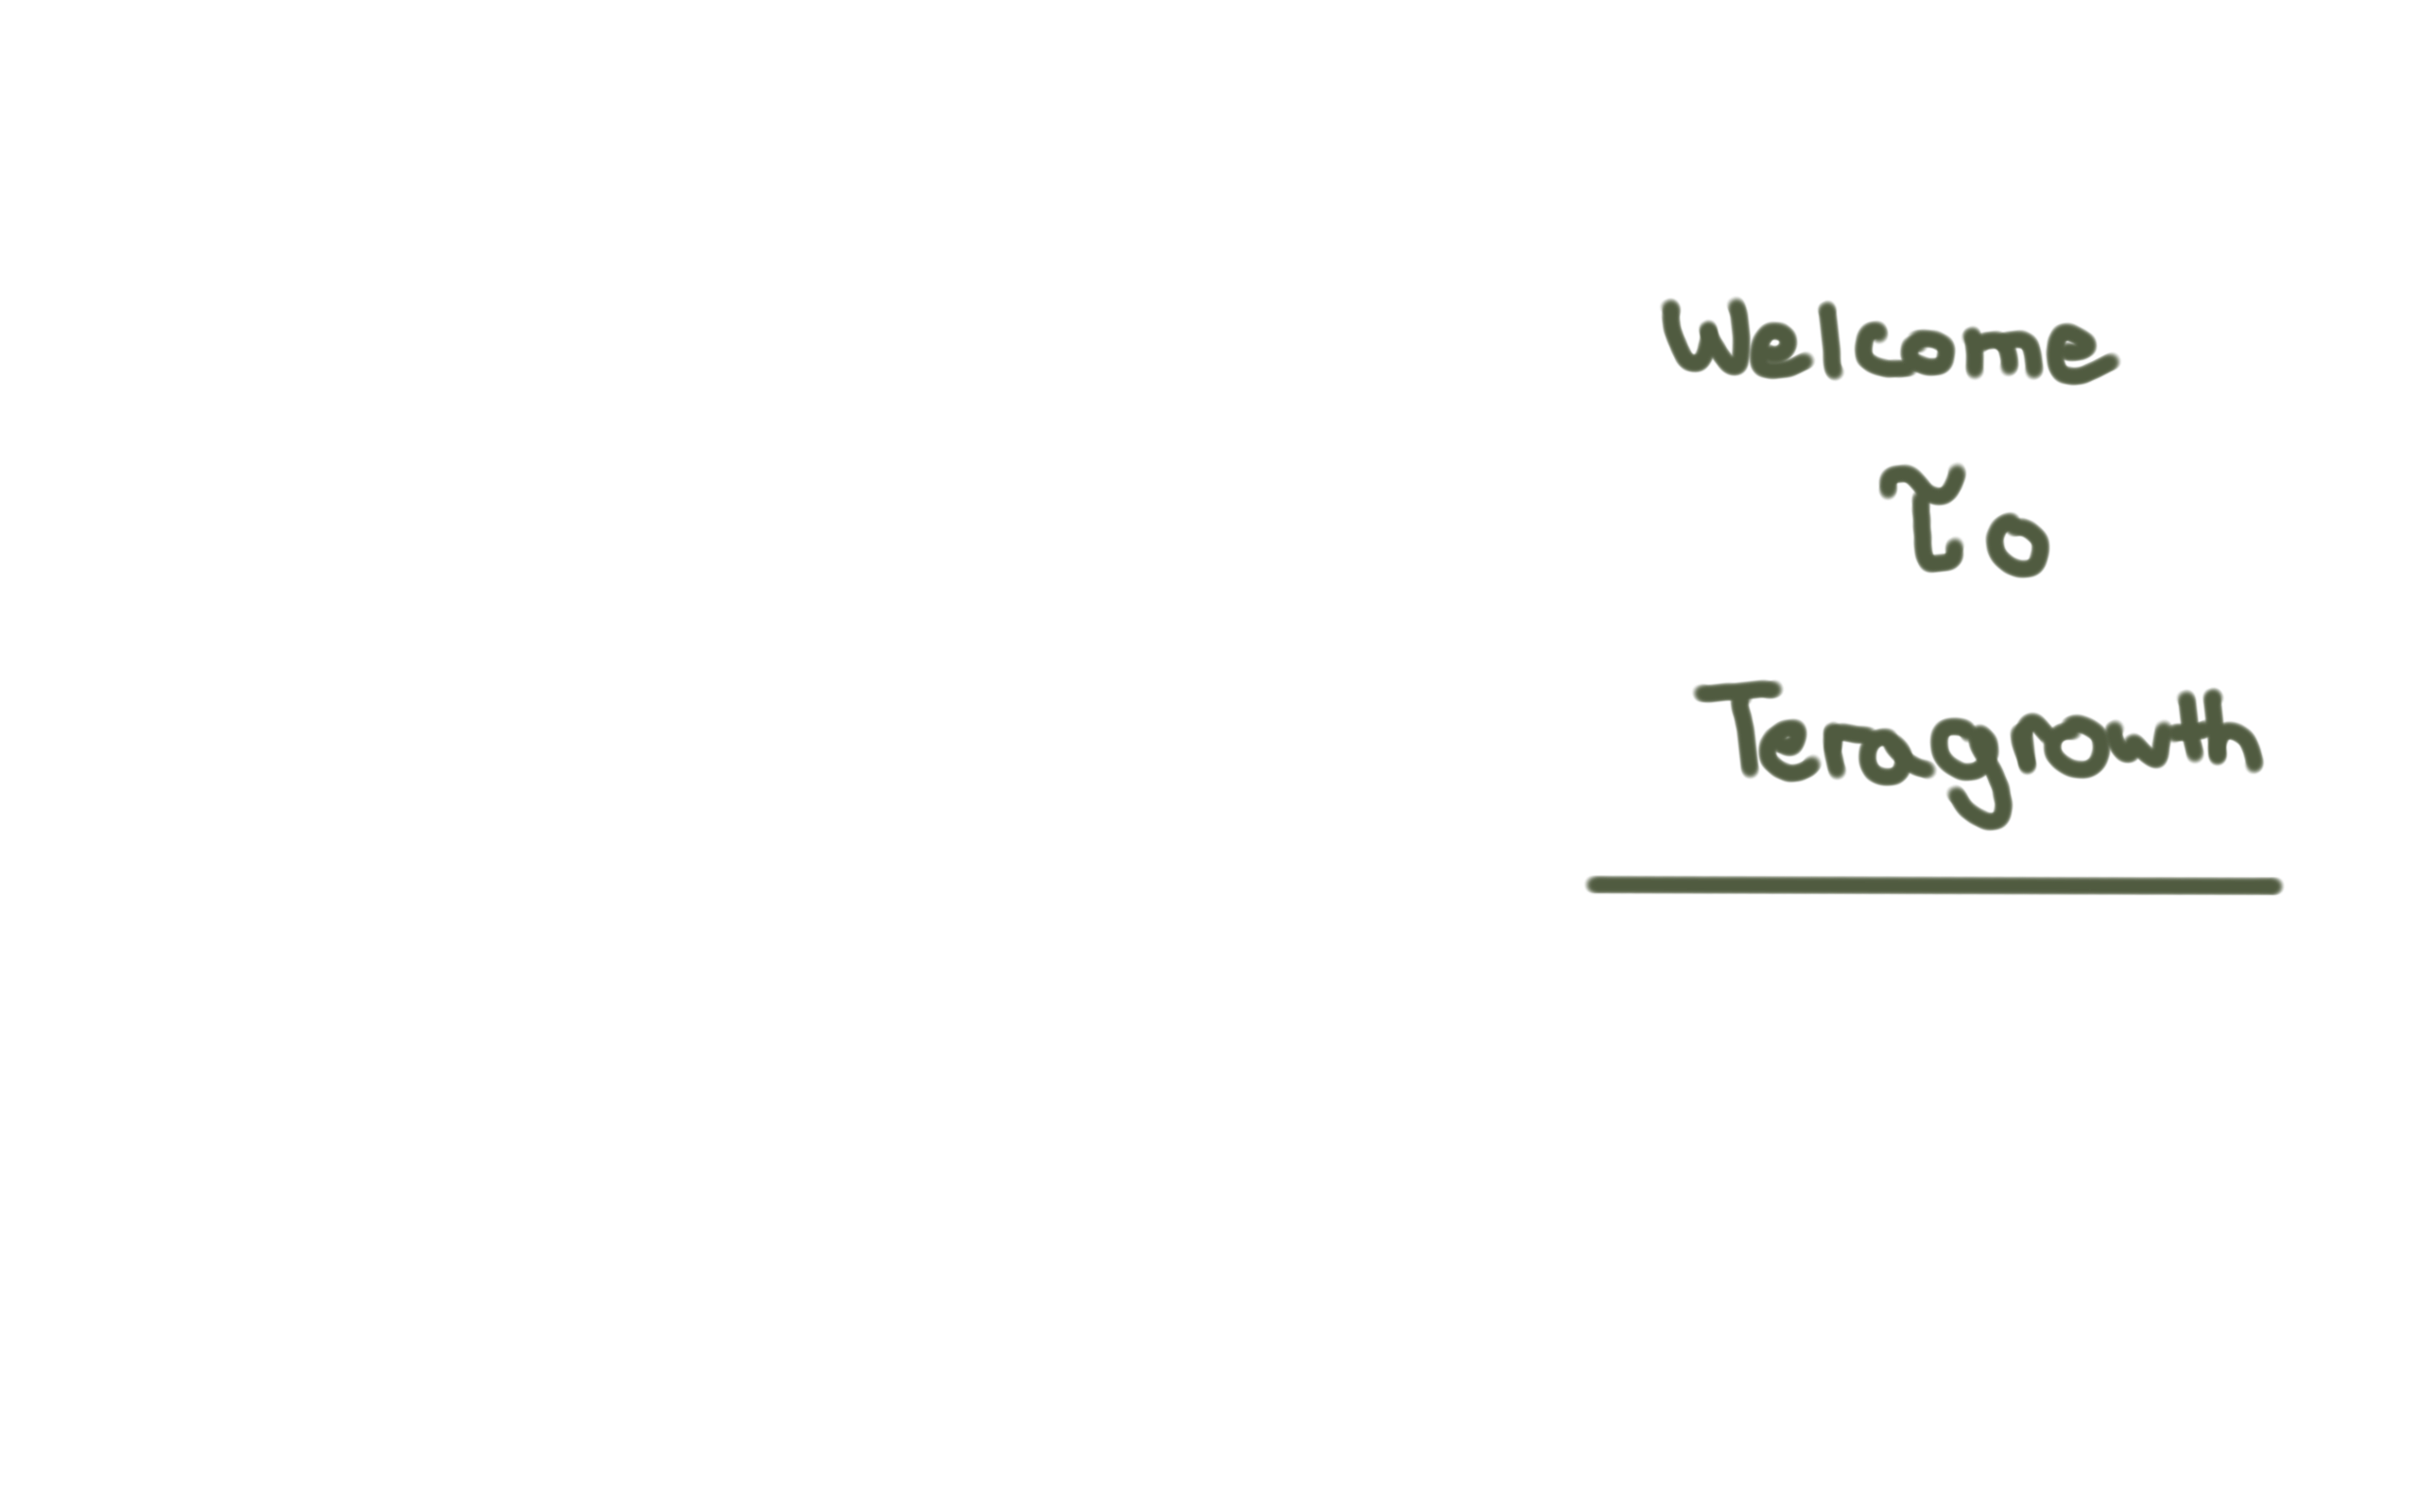 Welcome
To
Teragrowth